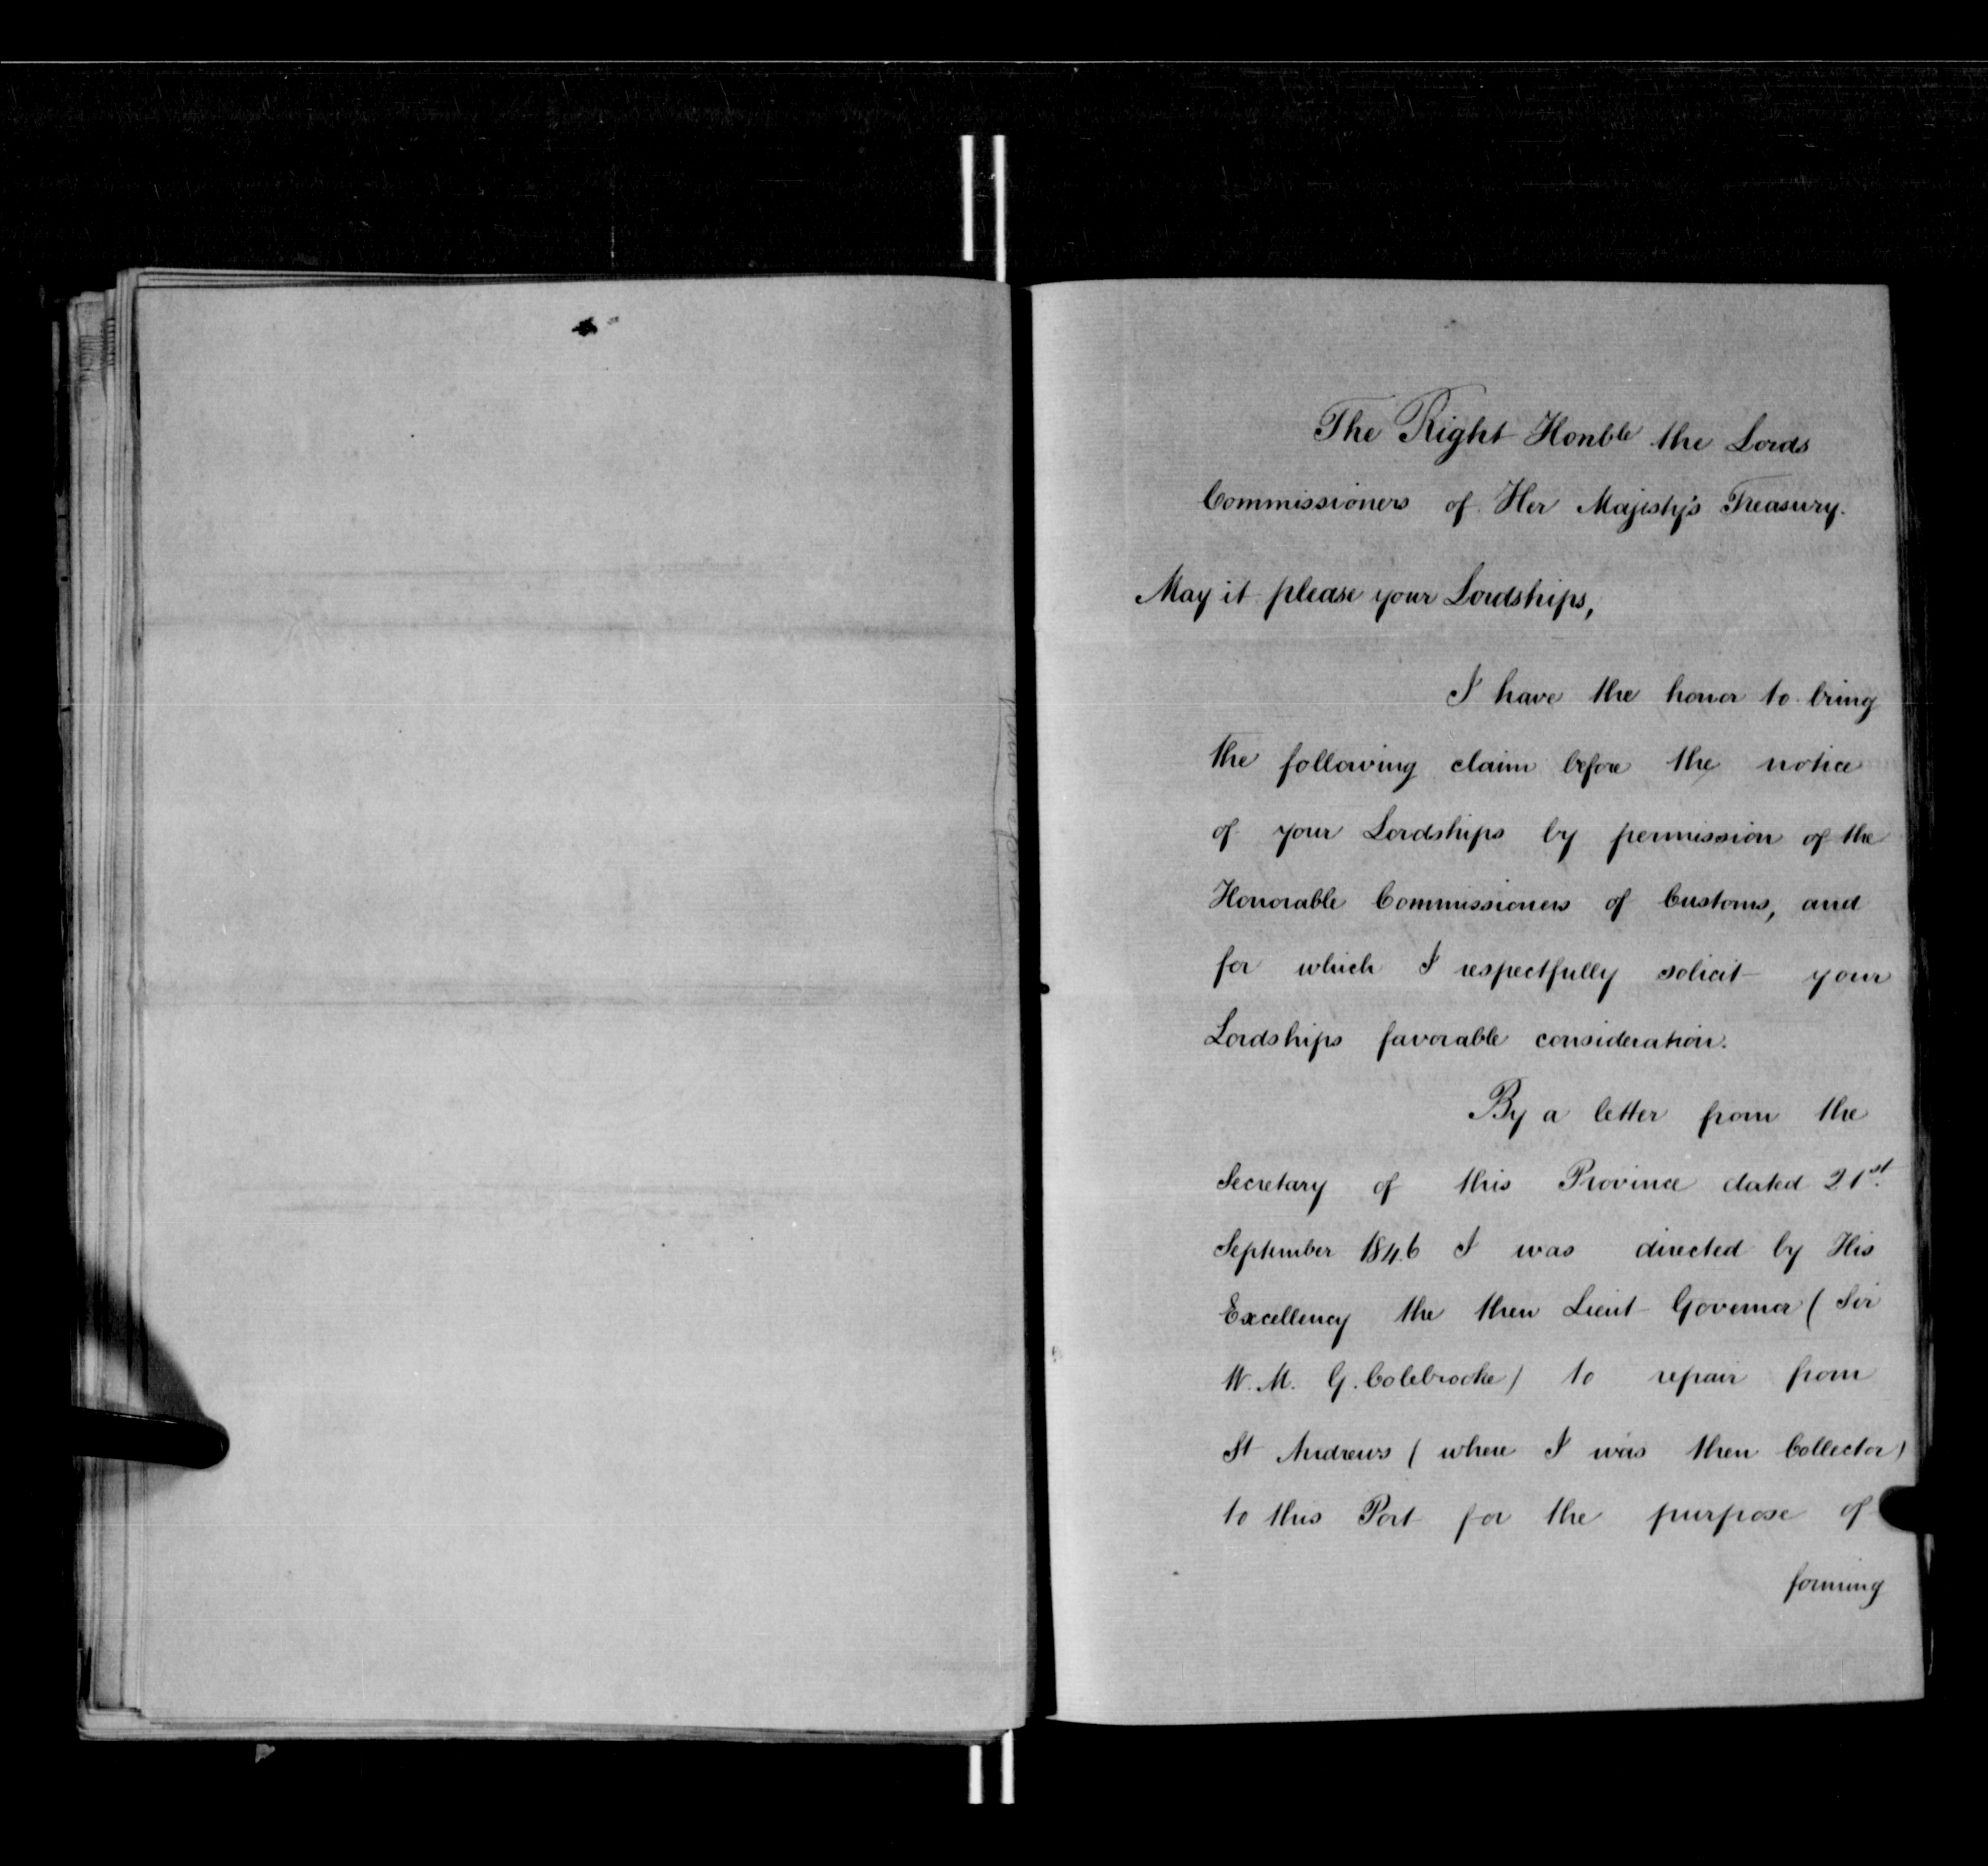 The Right Honble the Lords
Commissioners of Her Majesty's Treasury.
May it please your Lordships,
I have the honor to bring
the following claim before the notice
of your Lordships by permission of the
Honorable Commissioners of Customs, and
for which I respectfully solicit your
Lordships favorable consideration.
By a letter from the
Secretary of this Province dated 21st.
September 1846 I was directed by His
Excellency the then Lieut Governor (Sir
W. M. G. Colebrooke) to repair from
St Andrews (where I was then Collector)
to this Port for the purpose of
forming